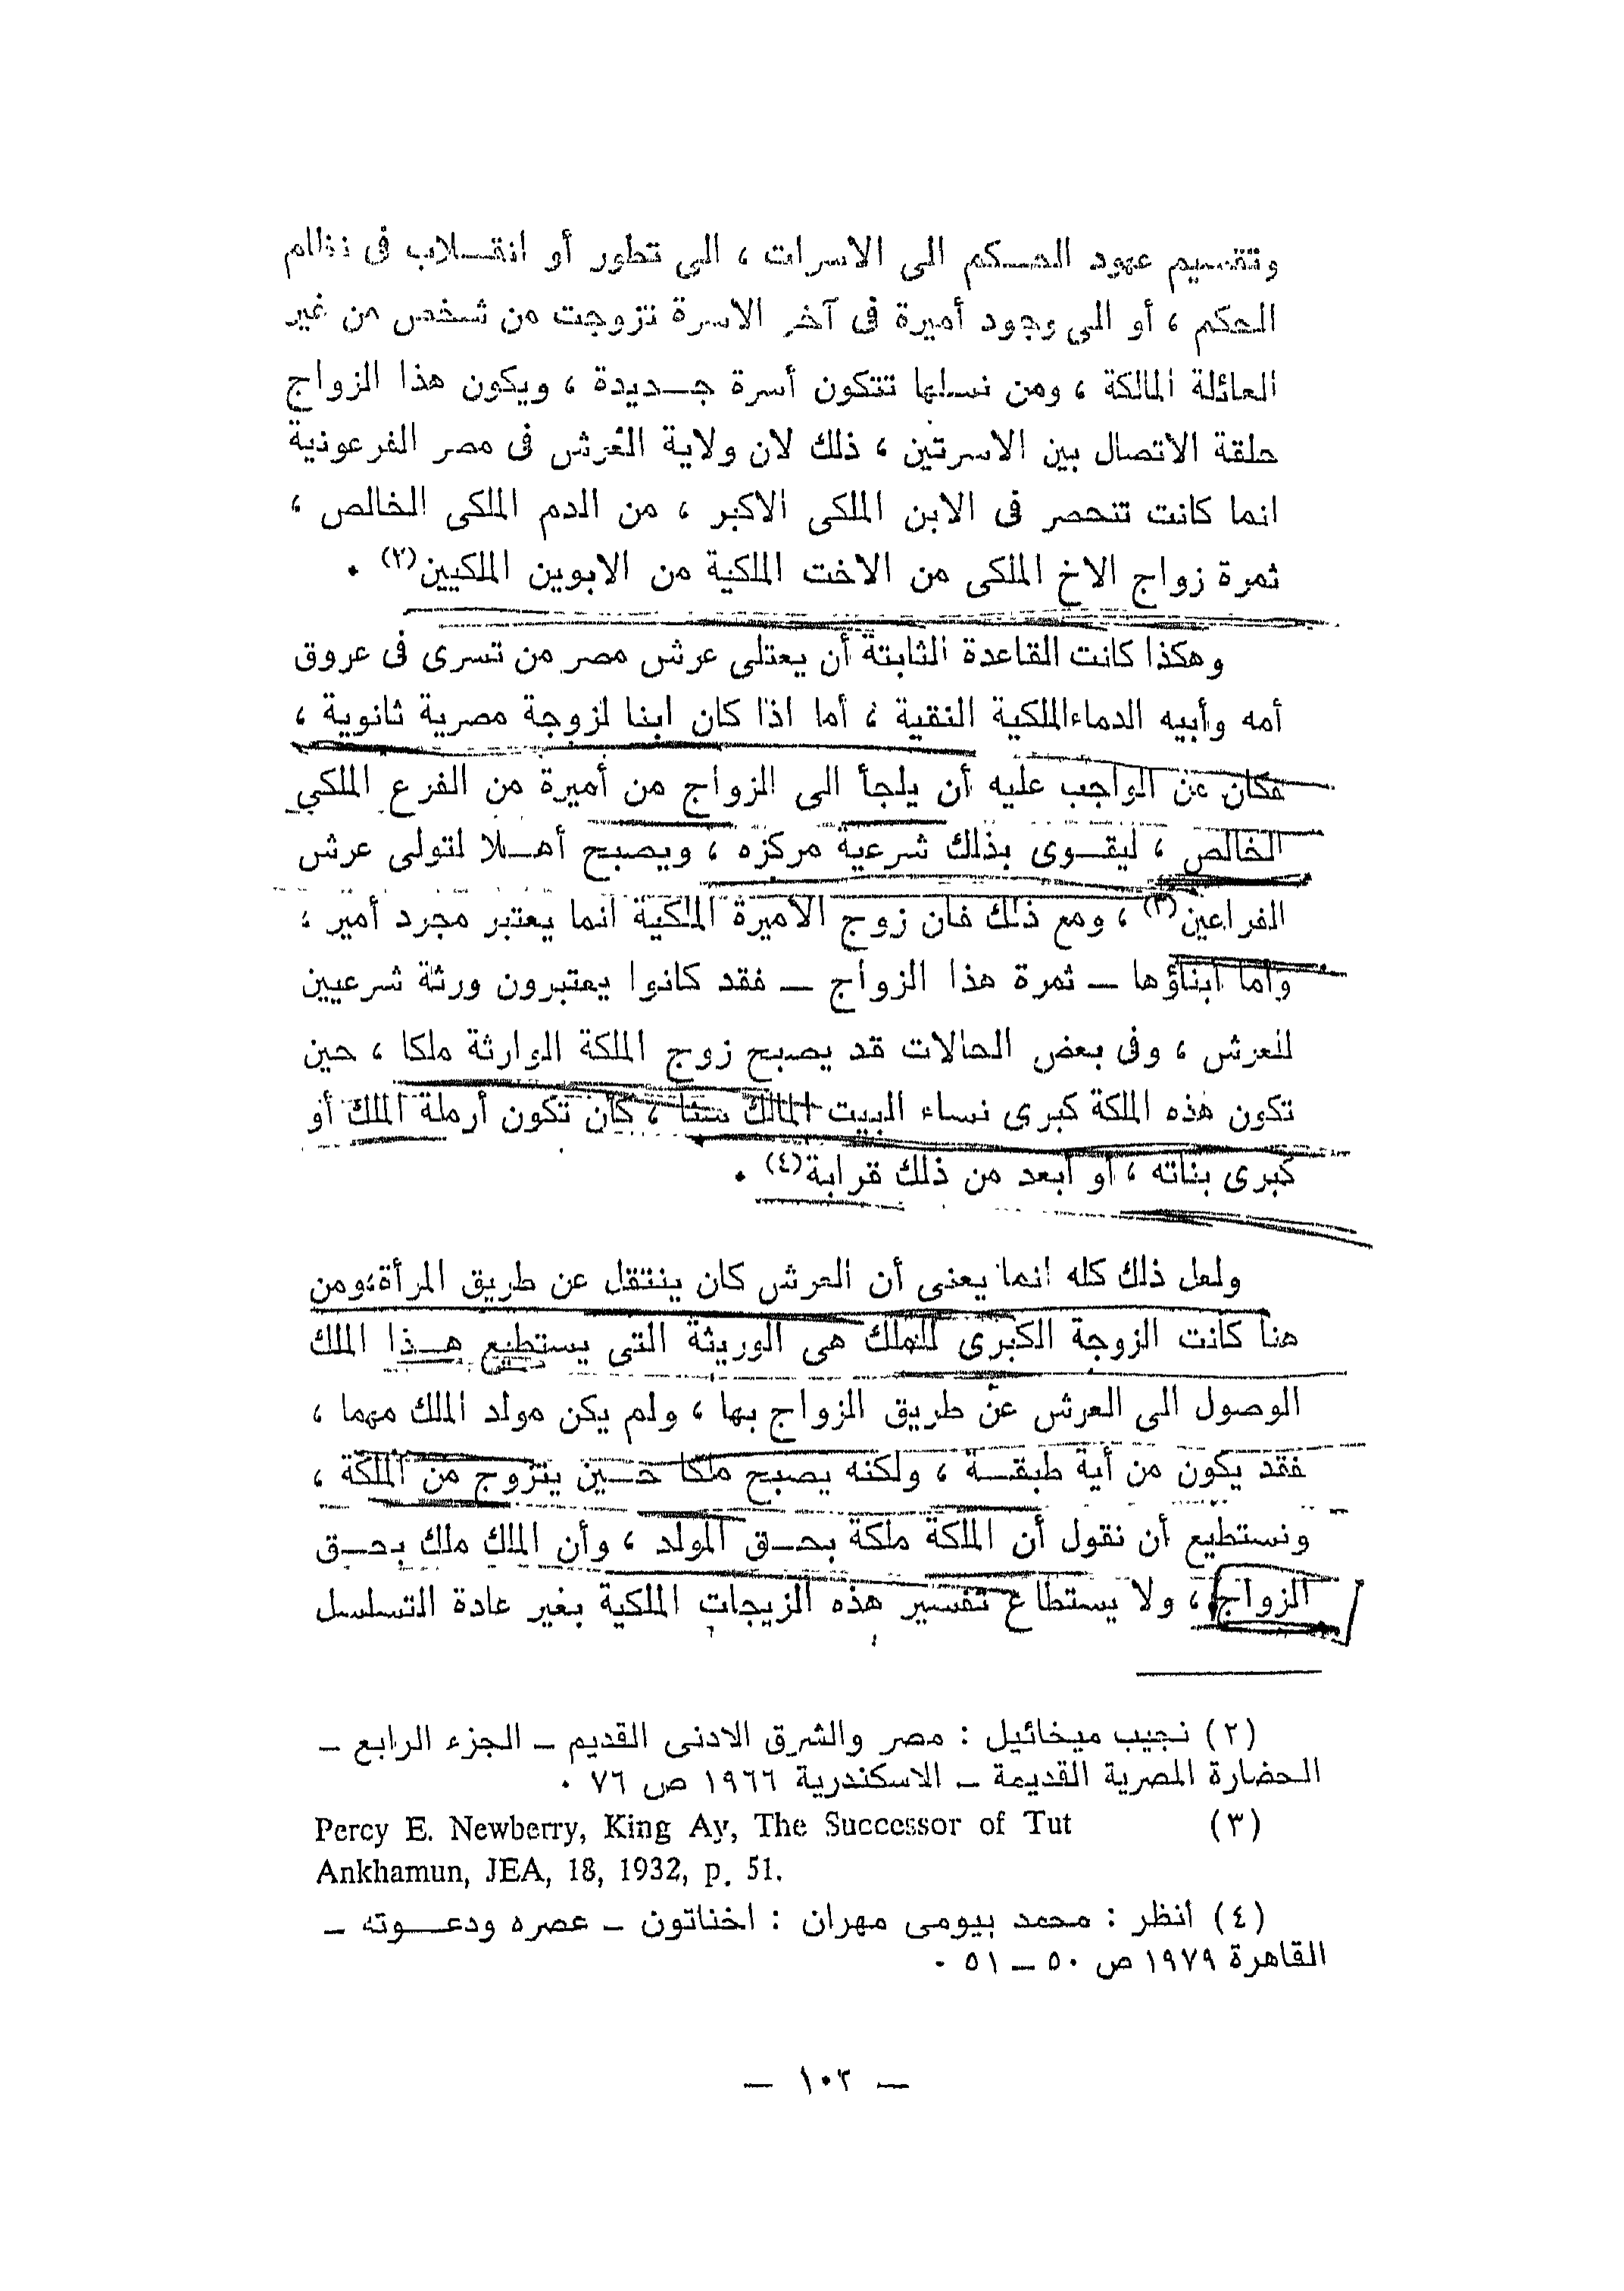 وتقسيم عهود الحكم الى الاسرات ، الى تطور أو انقلاب فى نظام
الحكم ، أو الى وجود أميرة فى آخر الاسرة تزوجت من شخص من غير
العائلة المالكة ، ومن نسلها تتكون أسرة جديدة ، ويكون هذا الزواج
حلقة الاتصال بين الاسرتين ، ذلك لان ولاية العرش فى مصر الفرعونية
انما كانت تنحصر فى الابن الملكى الاكبر ، من الدم الملكى الخالص ،
ثمرة زواج الاخ الملكى من الاخت الملكية من الابوين الملكيين(٢) ٠
وهكذا كانت القاعدة الثابتة أن يعتلى عرش مصر من تسرى فى عروق
أمه وأبيه الدماء الملكية النقية ، أما اذا كان ابنا لزوجة مصرية ثانوية ،
فكان من الواجب عليه أن يلجأ الى الزواج من أميرة من الفرع الملكي
الخالص ، ليقوى بذلك شرعية مركزه ، ويصبح أهلا لتولى عرش
الفراعين(٣) ، ومع ذلك فان زوج الأميرة الملكية انما يعتبر مجرد أمير ،
وأما أبناؤها — ثمرة هذا الزواج — فقد كانوا يعتبرون ورثة شرعيين
للعرش ، وفى بعض الحالات قد يصبح زوج الملكة الوارثة ملكا ، حين
تكون هذه الملكة كبرى نساء البيت المالك سنا ، كأن تكون أرملة الملك أو
كبرى بناته ، أو أبعد من ذلك قرابة(٤) ٠
ولعل ذلك كله انما يعنى أن العرش كان ينتقل عن طريق المرأة، ومن
هنا كانت الزوجة الكبرى للملك هى الوريثة التى يستطيع هذا الملك
الوصول الى العرش عن طريق الزواج بها ، ولم يكن مولد الملك مهما ،
فقد يكون من أية طبقة ، ولكنه يصبح ملكا حين يتزوج من الملكة ،
ونستطيع أن نقول أن الملكة ملكة بحق المولد ، وأن الملك ملك بحق
الزواج ، ولا يستطاع تفسير هذه الزيجات الملكية بغير عادة التسلسل
(٢) نجيب ميخائيل : مصر والشرق الادنى القديم — الجزء الرابع —
الحضارة المصرية القديمة — الاسكندرية ١٩٦٦ ص ٧٦ ٠
(٣) Percy E. Newberry, King Ay, The Successor of Tut
Ankhamun, JEA, 18, 1932, p. 51.
(٤) أنظر : محمد بيومى مهران : اخناتون — عصره ودعوته —
القاهرة ١٩٧٩ ص ٥٠ — ٥١ ٠
— ١٠٢ —